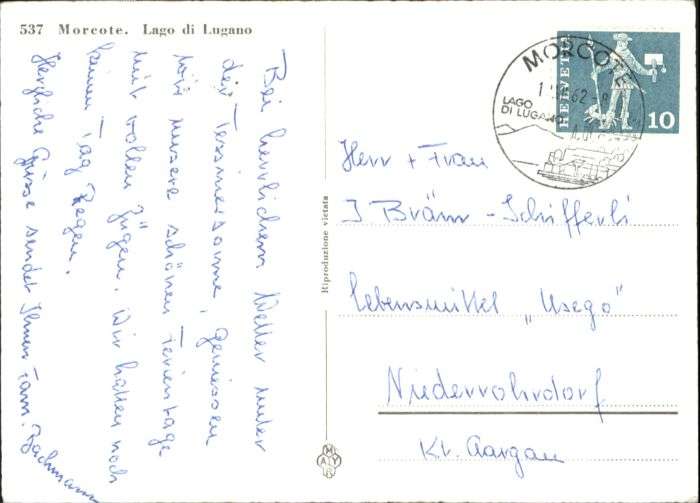 537 Morcote. Lago di Lugano
Bei herrlichem Wetter unter
der Tessinersonne, geniessen
wir unsere schönen Ferientage
mit vollen Zügen. Wir hatten noch
keinen Tag Regen.
Herzliche Grüsse sendet Ihnen Fam. Bachmann
Riproduzione vietata
MORCOTE
LAGO
DI LUGANO
HELVETIA
10
Herr + Frau
J Bräm-Schifferli
Lebensmittel „Usego"
Niederrohrdorf
Kt. Aargau